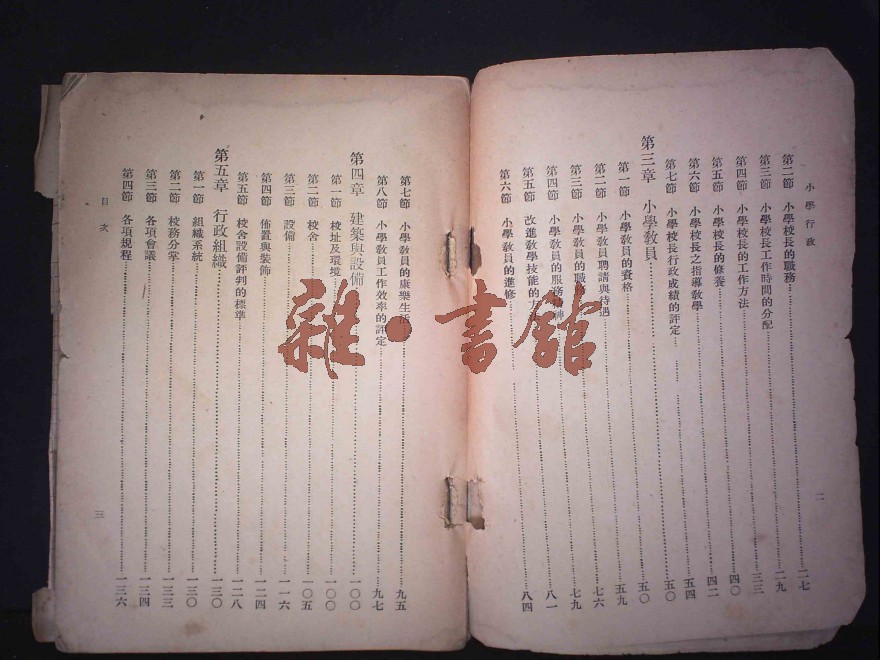 小學行政
二
第二節 小學校長的職務……二七
第三節 小學校長工作時間的分配……二九
第四節 小學校長的工作方法……三三
第五節 小學校長的修養……四〇
第六節 小學校長之指導教學……四二
第七節 小學校長行政成績的評定……五四
第三章 小學教員……五〇
第一節 小學教員的資格……五〇
第二節 小學教員聘請與待遇……五九
第三節 小學教員的職……七六
第四節 小學教員的服務神……七九
第五節 改進教學技能的方……八一
第六節 小學教員的進修……八四
第七節 小學教員的康樂生……九五
第八節 小學教員工作效率的評定……九七
第四章 建築與設備……一〇〇
第一節 校址及環境……一〇〇
第二節 校舍……一〇五
第三節 設備……一一六
第四節 佈置與裝飾……一二四
第五節 校舍設備評判的標準……一二八
第五章 行政組織……一三〇
第一節 組織系統……一三〇
第二節 校務分掌……一三三
第三節 各項會議……一三四
第四節 各項規程……一三六
目次
三
雜·書館